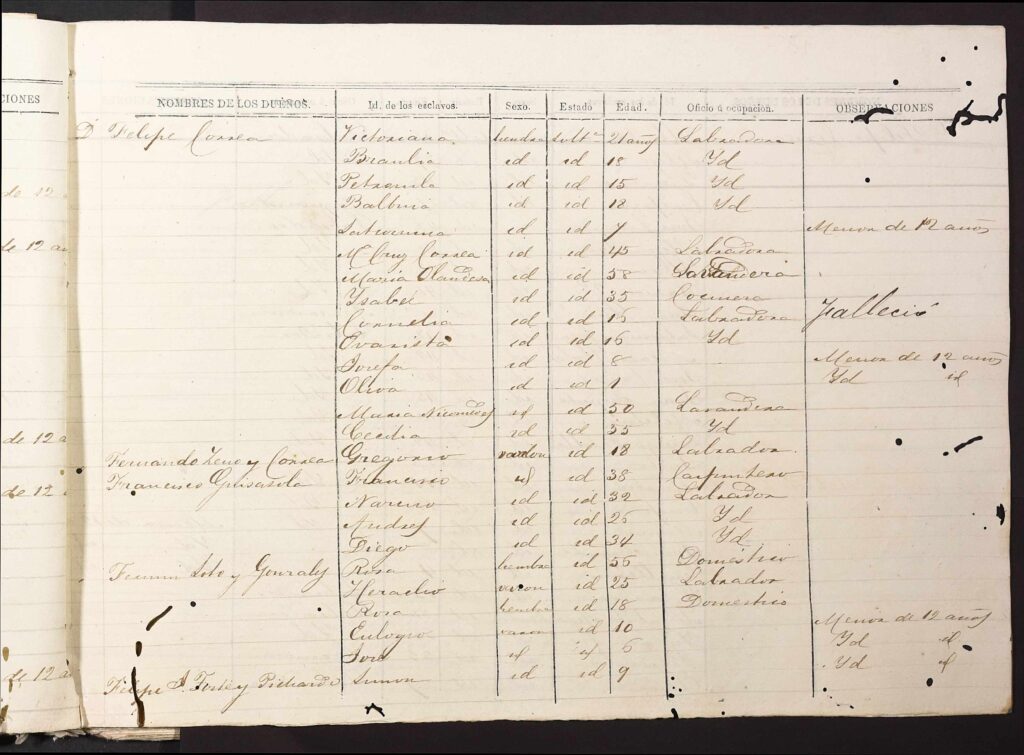 CIONES
de 12 a
de 12 an
de 12 a
de 12
de 12 a
NOMBRES DE LOS DUEÑOS. Id. de los esclavos. Sexo. Estado Edad. Oficio ú ocupacion. OBSERVACIONES
Dn Felipe Correa Victoriana hembra solta 21 años Labradora
Braulia id id 18 Yd
Petronila id id 15 Yd
Balbina id id 12 Yd
Saturnina id id 7 Menor de 12 años
Ma Cruz Correa id id 45 Labradora
Maria Olandesa id id 58 Lavandera
Ysabel id id 35 Cocinera
Cornelia id id 15 Labradora Falleció
Evarista id id 16 Yd
Josefa id id 8 Menor de 12 años
Oliva id id 1 Yd id
Maria Nicomedes id id 50 Lavandera
Cecilia id id 55 Yd
Fernando Zeno y Correa Gregorio varon id 18 Labrador.
Francisco Grisasola Francisco id id 38 Carpintero
Narciso id id 32 Labrador
Andres id id 25 Yd
Diego id id 34 Yd
Fermin Soto y Gonzales Rosa hembra id 55 Doméstico
Heraclio varon id 25 Labrador
Rosa hembra id 18 Domestico
Eulogio varon id 10 Menor de 12 años
José id id 6 Yd id
Felipe Simon id id 9 Yd id